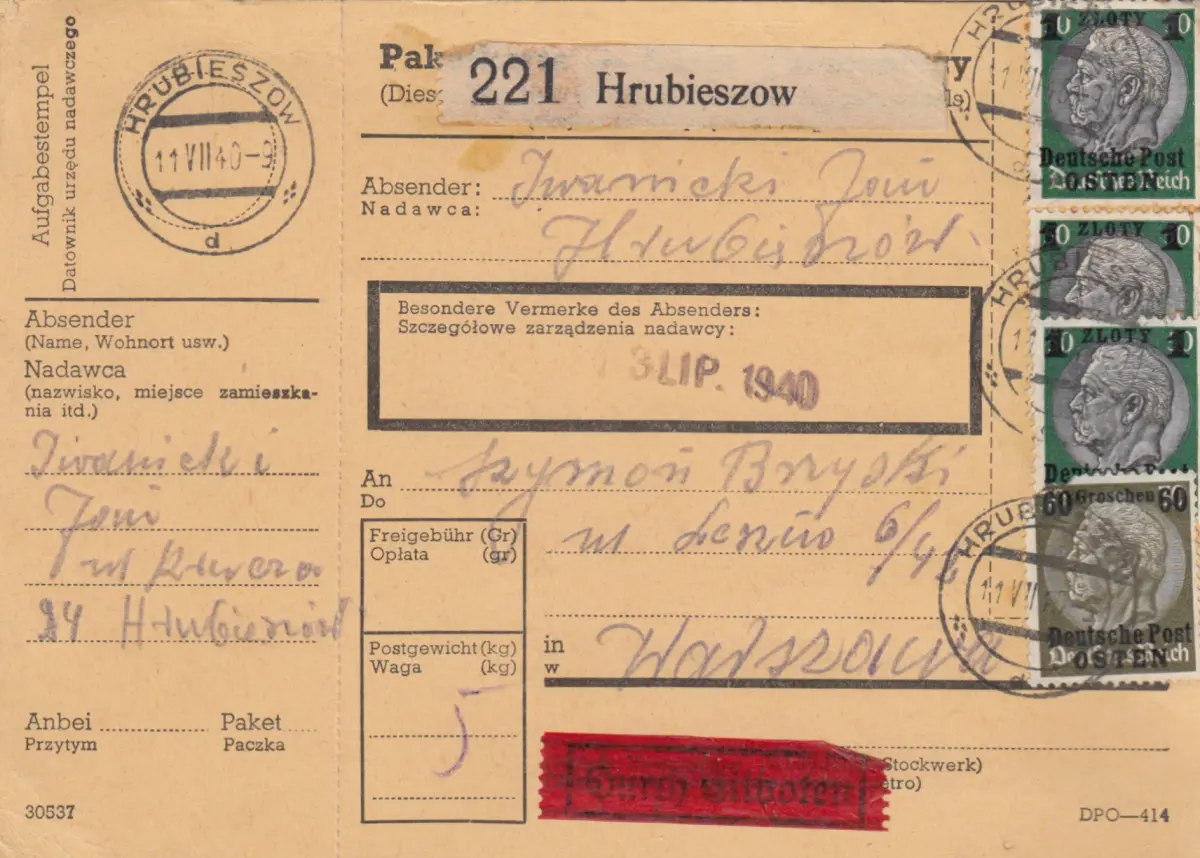 Aufgabestempel
Datownik urzędu nadawczego
HRUBIESZOW
11 VII 40-9
d
Absender
(Name, Wohnort usw.)
Nadawca
(nazwisko, miejsce zamieszka-
nia itd.)
Iwanicki
Hrubieszów
Anbei Paket
Przytym Paczka
30537
Pak
(Dies
221 Hrubieszow
Absender: Iwanicki
Nadawca:
Hrubieszów
Besondere Vermerke des Absenders:
Szczegółowe zarządzenia nadawcy:
3 LIP. 1940
An Szymon Bryski
Do
Freigebühr (Gr)
Opłata (gr)
ul Leszno 6/
Postgewicht (kg)
Waga (kg)
5
in Warszawa
w
Durch Eilboten
Stockwerk)
DPO—414
1 ZLOTY 1
Deutsche Post
OSTEN
Deutsches Reich
HRUBIESZOW
ZLOTY 10
1 ZLOTY 1
60 Groschen 60
HRUB
11 VII
Deutsche Post
OSTEN
Deutsches Reich